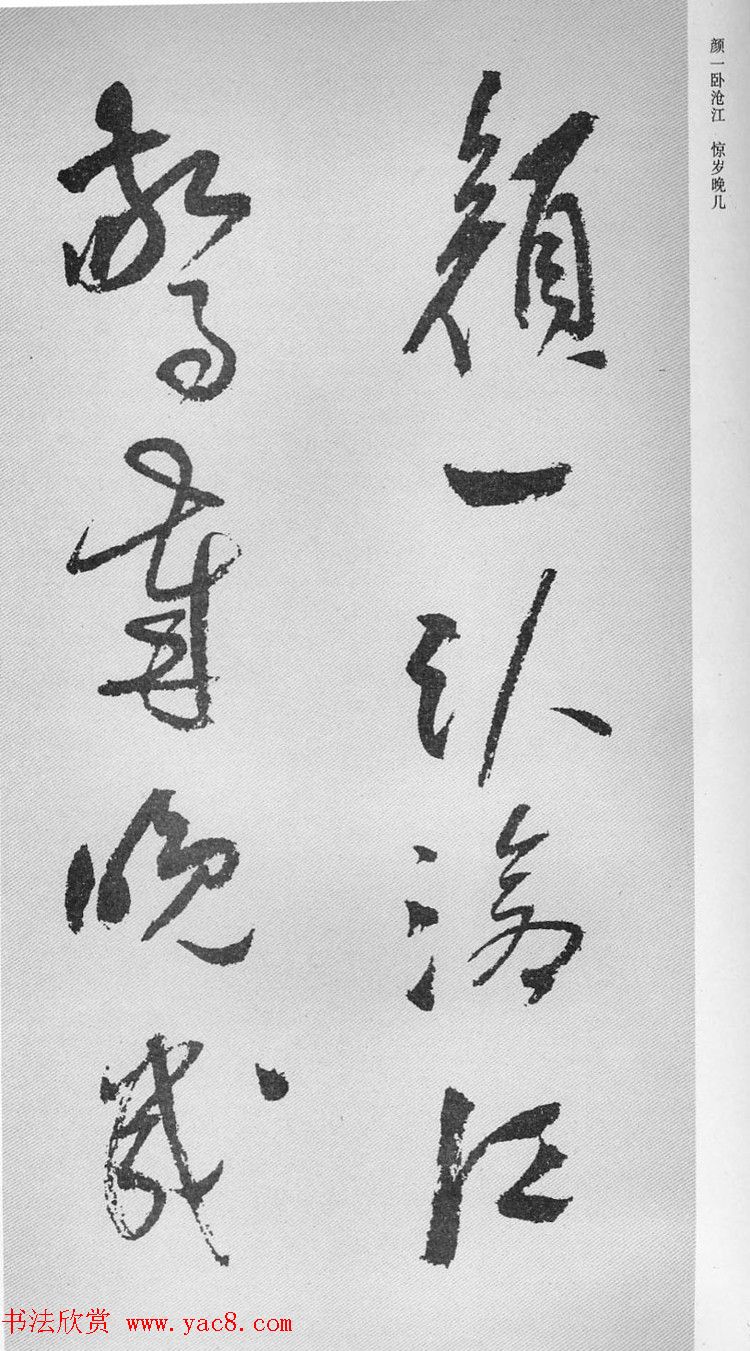 颜一卧沧江 惊岁晚几
顏一卧滄江
驚歲晚幾
书法欣赏 www.yac8.com